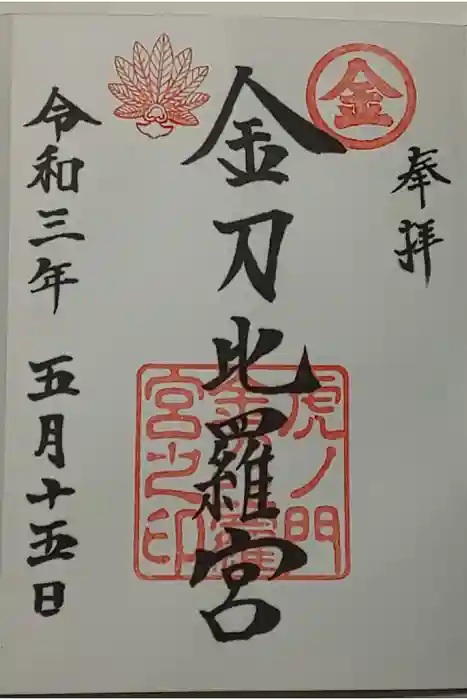 奉拝
金
金刀比羅宮
虎ノ門
宮之印
令和三年 五月十五日